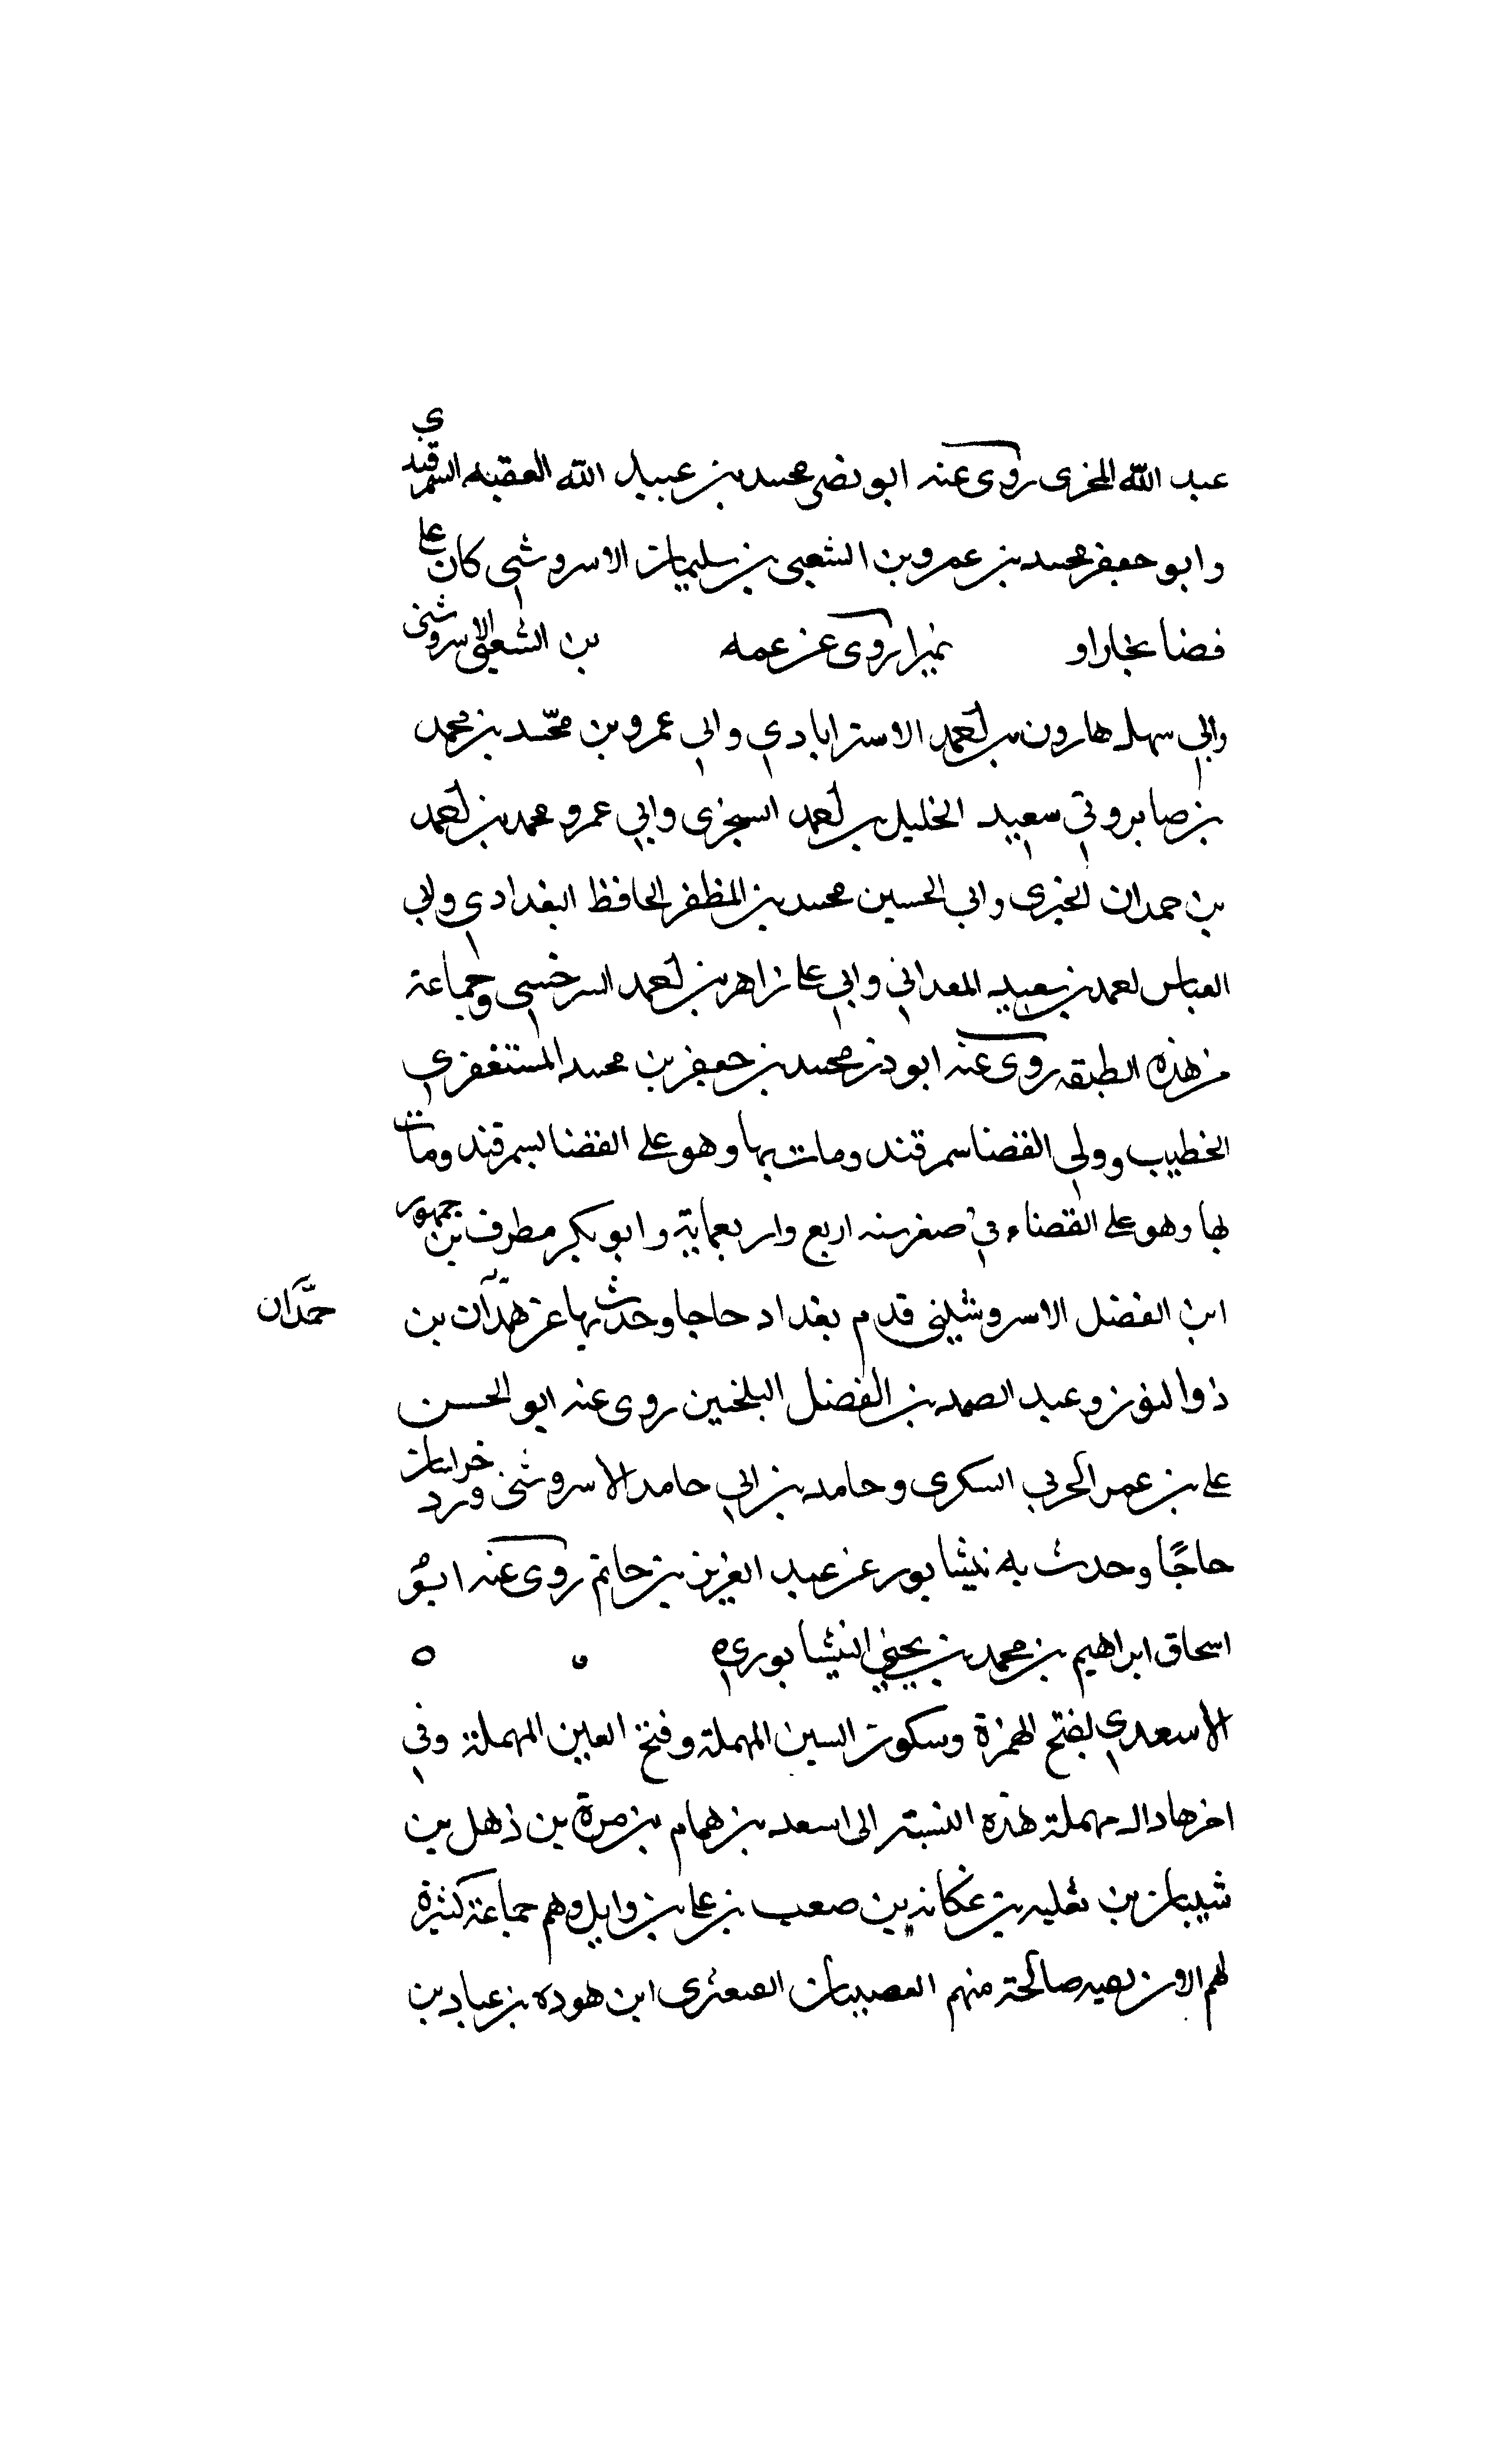 عبد الله المخزى روى عنه ابو نصر محمد بن عبيد الله الفقيه السمرقندى
وابو جعفر محمد بن عمرو بن الشعبى بن سليمان الاسروشنى كان على
قضا بخارا و نميرا روى عن عمه بن الشعبى الاسروشنى
وابي سهل هارون بن احمد الاسترابادي وابي عمرو بن محمد بن محمد
بن صابر وابي سعيد الخليل بن احمد السجزى وابي عمرو محمد بن احمد
بن حمدان الحيرى وابي الحسين محمد بن المظفر الحافظ البغدادي وابي
العباس احمد بن سعيد المعداني وابي على زاهر بن احمد السرخسي وجماعة
من هذه الطبقه روى عنه ابو ذر محمد بن جعفر بن محمد المستغفري
الخطيب وولي القضا سمرقند ومات بها وهو على القضا بسمرقند ومات
بها وهو على القضاء في صفر سنه اربع واربعماية وابو بكر مطرف بن جمهور
ابن الفضل الاسروشيني قدم بغداد حاجا وحدث بها عن همدان بن
حمّدان
ذوا النون وعبد الصمد بن الفضل البلخيين روى عنه ابو الحسن
على بن عمر الحربي السكرى وحامد بن ابي حامد الاسروشنى ورد خراسان
حاجًا وحدث به نيشابور عن عبد العزيز بن حاتم روى عنه ابو
اسحاق ابراهيم بن محمد بن يحيى النيشابوري ه ه ه
الاسعدي بفتح الهمزة وسكون السين المهملة وفتح العين المهملة وفي
اخرها دال مهملة هذه النسبة الى اسعد بن همام بن مرة بن ذهل بن
شيبان بن ثعلبه بن عكانه بن صعب بن على بن وايل وهم جماعة كثيرة
لهم صالحة منهم الغضبان ابن هوده بن عباد بن